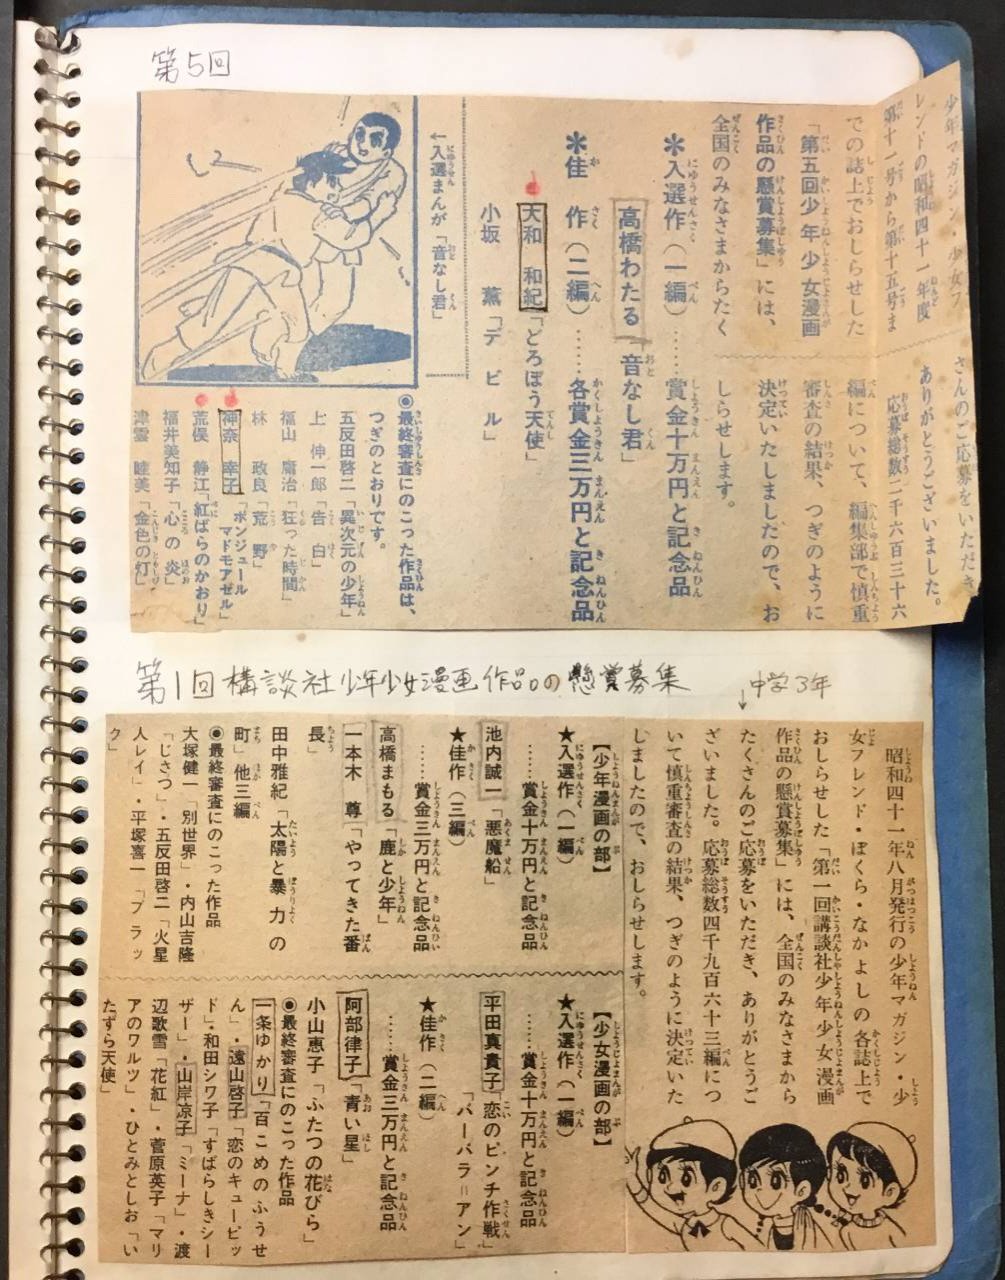 第5回
少年マガジン・少女フ
レンドの昭和四十一年度
第十一号から第十五号ま
での誌上でおしらせした
「第五回少年少女漫画
作品の懸賞募集」には、
全国のみなさまからたく
さんのご応募をいただき
ありがとうございました。
応募総数二千六百三十六
編について、編集部で慎重
審査の結果、つぎのように
決定いたしましたので、お
しらせします。
＊入選作（一編）……賞金十万円と記念品
高橋わたる「音なし君」
＊佳作（二編）……各賞金三万円と記念品
大和和紀「どろぼう天使」
小坂薫「デビル」
←入選まんが「音なし君」
◉最終審査にのこった作品は、
つぎのとおりです。
五反田啓二「異次元の少年」
上伸一郎「告白」
福山庸治「狂った時間」
林政良「荒野」
神奈幸子「ボンジュール
マドモアゼル」
荒俣静江「紅ばらのかおり」
福井美知子「心の炎」
津雲睦美「金色の灯」
第1回構談社少年少女漫画作品の懸賞募集
↓中学3年
昭和四十一年八月発行の少年マガジン・少
女フレンド・ぼくら・なかよしの各誌上で
おしらせした「第一回講談社少年少女漫画
作品の懸賞募集」には、全国のみなさまから
たくさんのご応募をいただき、ありがとうご
ざいました。応募総数四千九百六十三編につ
いて慎重審査の結果、つぎのように決定いた
しましたので、おしらせします。
【少年漫画の部】
★入選作（一編）
……賞金十万円と記念品
池内誠一「悪魔船」
★佳作（三編）
……賞金三万円と記念品
高橋まもる「鹿と少年」
一本木尊「やってきた番
長」
田中雅紀「太陽と暴力の
町」他三編
◉最終審査にのこった作品
大塚健一「別世界」・内山吉隆
「じさつ」・五反田啓二「火星
人レイ」・平塚喜一「ブラッ
ク」
【少女漫画の部】
★入選作（一編）
……賞金十万円と記念品
平田真貴子「恋のピンチ作戦」
「バーバラ＝アン」
★佳作（二編）
……賞金三万円と記念品
阿部律子「青い星」
小山恵子「ふたつの花びら」
◉最終審査にのこった作品
一条ゆかり「百こめのふうせ
ん」・遠山啓子「恋のキューピッ
ド」・和田シワ子「すばらしきシー
ザー」・山岸凉子「ミーナ」・渡
辺歌雪「花紅」・菅原英子「マリ
アのワルツ」・ひとみとしお「い
たずら天使」